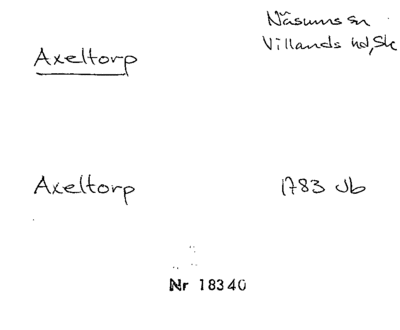 Axeltorp
Näsums sn
Villands hd, Sk
Axeltorp
1783 Jb
Nr 18340